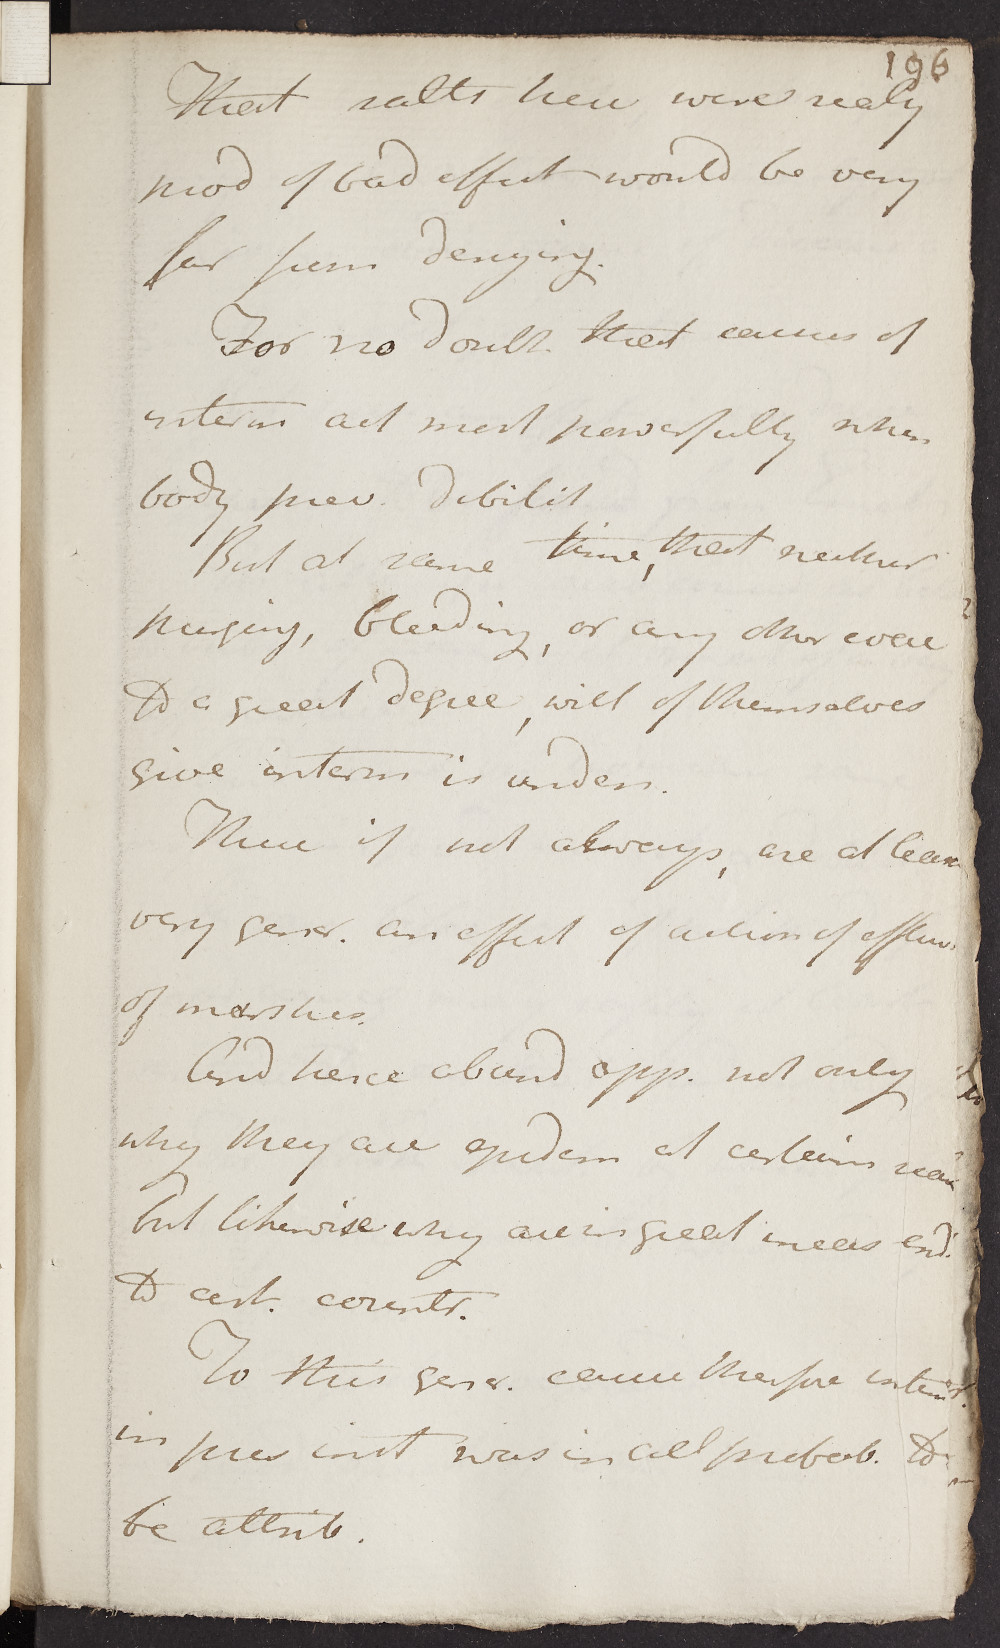 196
That salts here were realy
prod of bad effect would be very
far from denying.
For no doubt. that causes of
interm act most powerfully when
body prev. debilit
But at same time, that neither
purging, bleeding, or any other evac
to a great degree, will of themselves
give interm is unden.
These if not always, are at leas
very gener. an effect of action of effluv.
of marshes.
And hence abund opp. not only
why they are epidem at certain seas
but likewise why are in great meas end.
to cert. countr.
To this gener. cause therfore interm.
in pres inst was in all probab. to
be attrib.